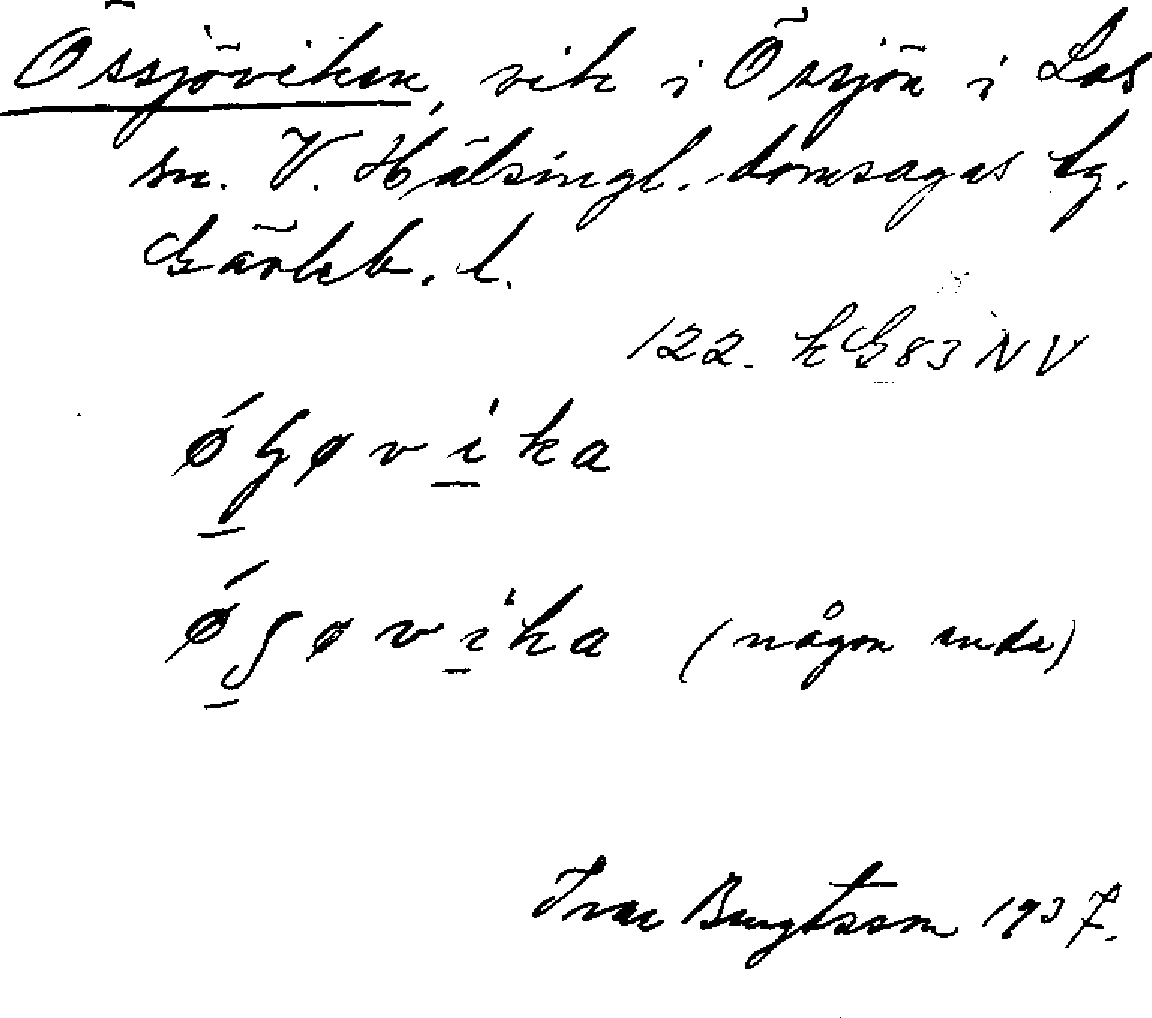 Össjöviken, vik i Össjön i Los
sn. V. Hälsingl. domsagas tg.
Gävleb. l.
122. kG83NV
(någon enda)
Ivar Bengtsson 1937.